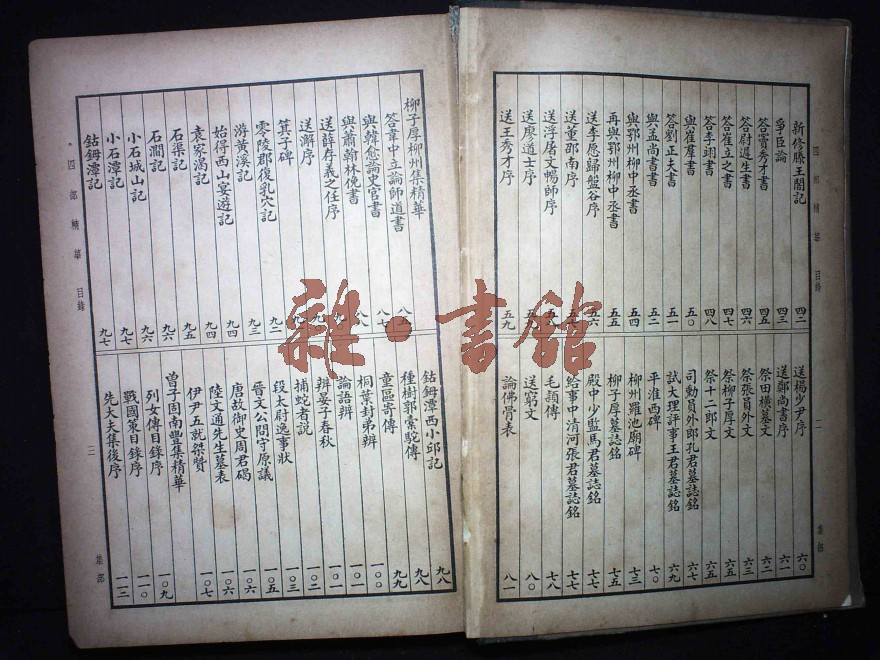 四部精華 目錄
二
集部
新修滕王閣記 四二
爭臣論 四三
答竇秀才書 四五
答尉遲生書 四六
答崔立之書 四七
答李翊書 四八
與崔羣書 五〇
答劉正夫書 五一
與孟尚書書 五二
與鄂州柳中丞書 五四
再與鄂州柳中丞書 五五
送李愿歸盤谷序 五六
送董邵南序
送浮屠文暢師序
送廖道士序 五九
送王秀才序 五九
送楊少尹序 六〇
送鄭尚書序 六一
祭田橫墓文 六二
祭張員外文 六三
祭柳子厚文 六五
祭十二郎文 六五
司勳員外郎孔君墓誌銘 六七
試大理評事王君墓誌銘 六九
平淮西碑 七〇
柳州羅池廟碑 七三
柳子厚墓誌銘 七五
殿中少監馬君墓誌銘 七七
給事中清河張君墓誌銘 七七
毛穎傳 七八
送窮文 八〇
論佛骨表 八一
柳子厚柳州集精華 八五
答韋中立論師道書 八七
與韓愈論史官書 八八
與蕭翰林俛書
送薛存義之任序
送澥序
箕子碑 九二
零陵郡復乳穴記 九三
游黃溪記
始得西山宴遊記 九四
袁家渴記 九四
石渠記 九五
石澗記 九六
小石城山記 九六
小石潭記 九七
鈷鉧潭記 九七
鈷鉧潭西小邱記 九八
種樹郭橐駝傳 九八
童區寄傳 九九
桐葉封弟辨 一〇〇
論語辨 一〇一
辨晏子春秋 一〇二
捕蛇者說 一〇三
段太尉逸事狀
晉文公問守原議 一〇五
唐故御史周君碣 一〇六
陸文通先生墓表 一〇六
伊尹五就桀贊 一〇七
曾子固南豐集精華
列女傳目錄序 一〇九
戰國策目錄序 一一〇
先大夫集後序 一一二
四部精華 目錄
三
集部
雜·書館